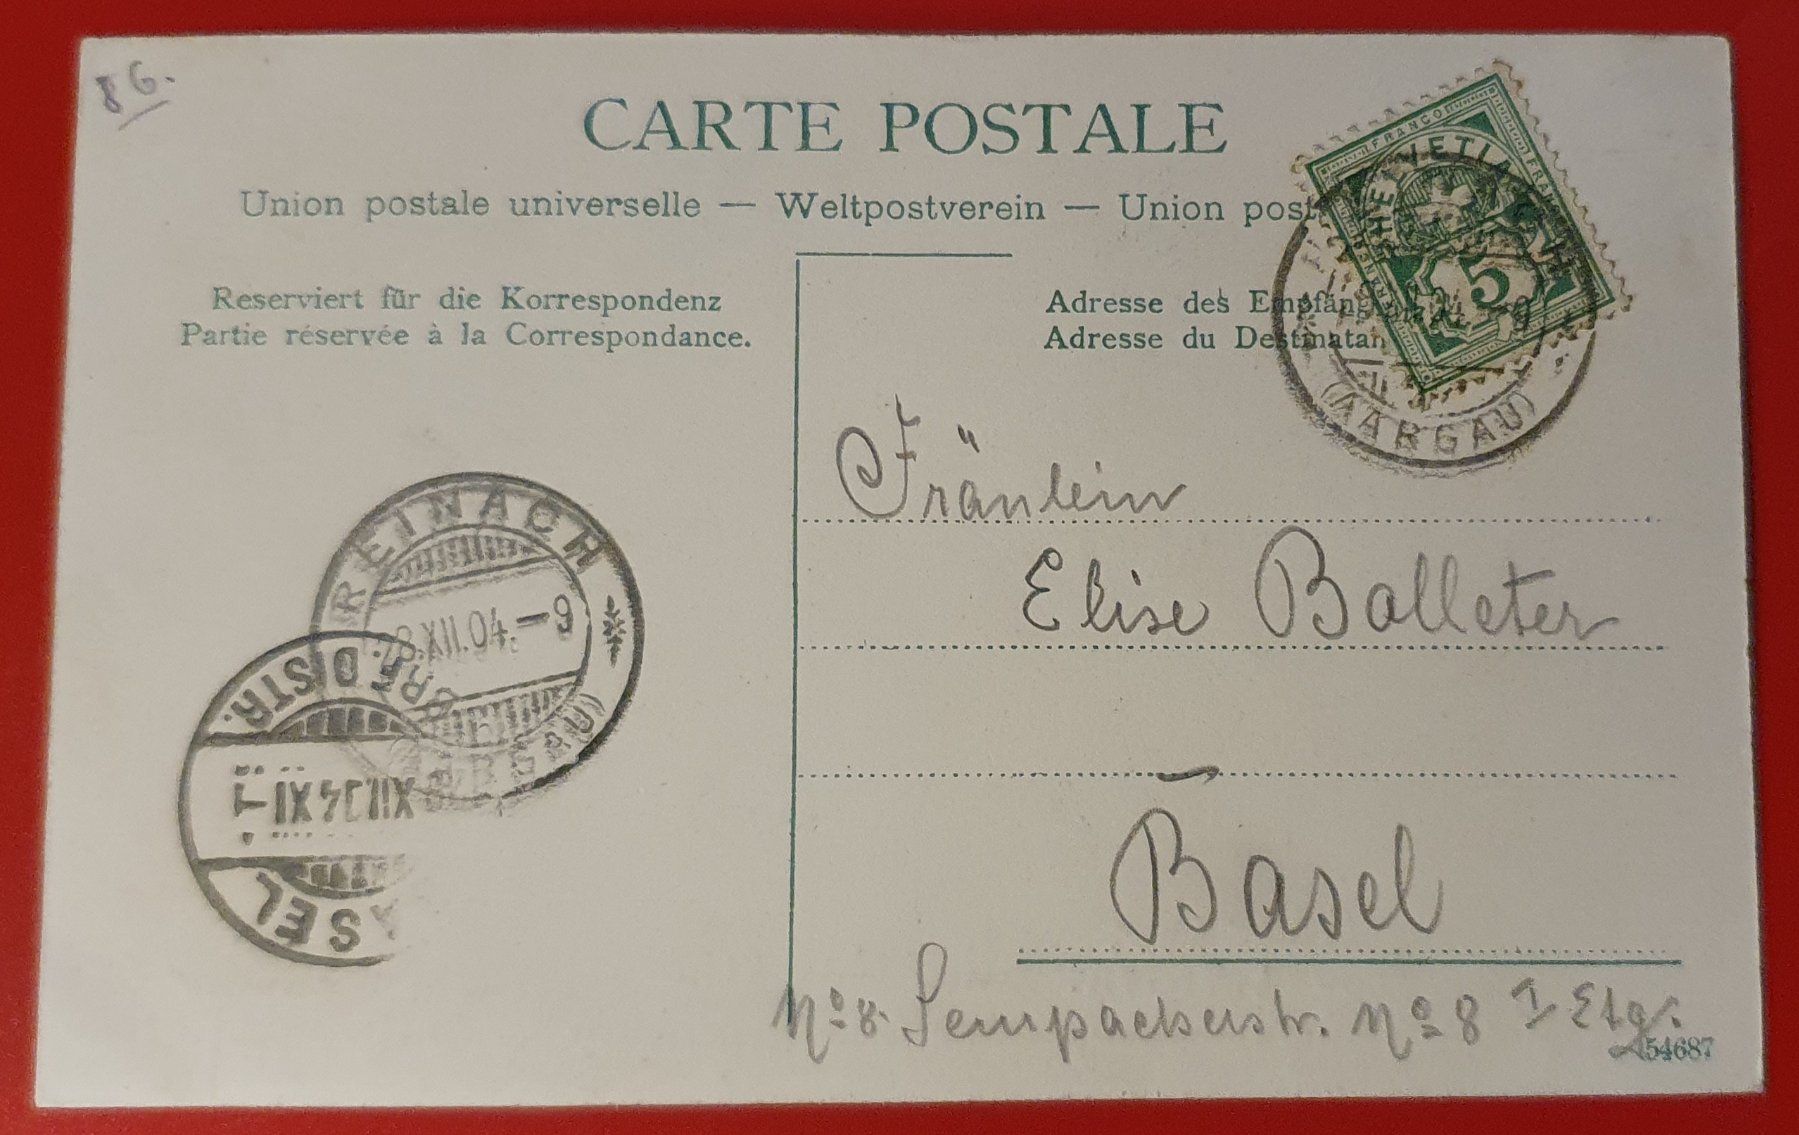 8 G.
CARTE POSTALE
Union postale universelle — Weltpostverein — Union post
Reserviert für die Korrespondenz
Partie réservée à la Correspondance.
Adresse des Empfäng
Adresse du Destinatan
FRANCO
HELVETIA
FRANCO
5
(AARGAU)
REINACH
8.XII.04.-9
(AARGAU)
BRF. DISTR.
XII.04 XI
BASEL
Fräulein
Elise Balleter
Basel
No 8. Sempacherstr. No 8 I Etg.
54687